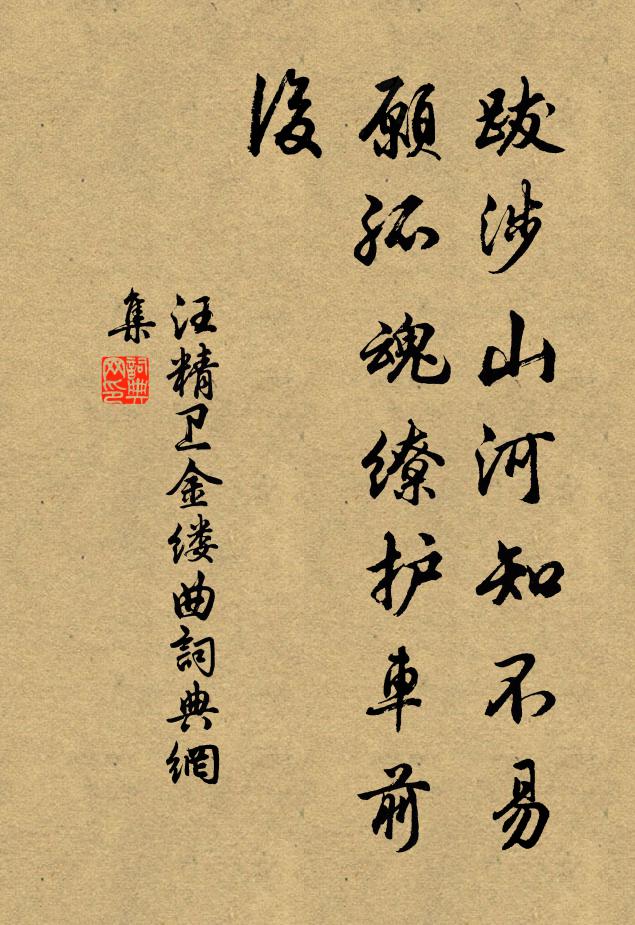 跋涉山河知不易
願孤魂繚护車前
後
汪精卫金缕曲詞典網
集
詞典
网印